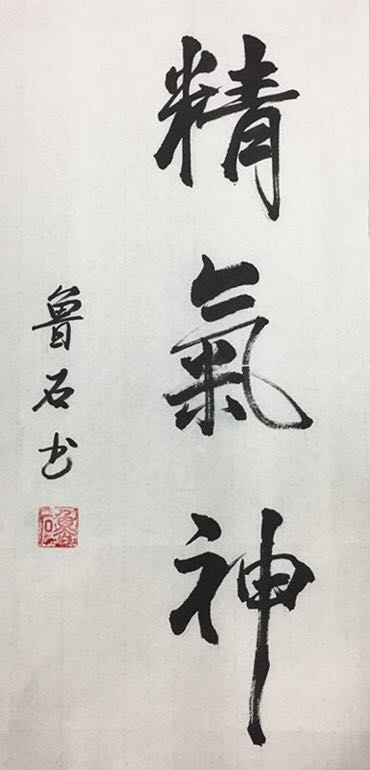 精氣神
鲁石书